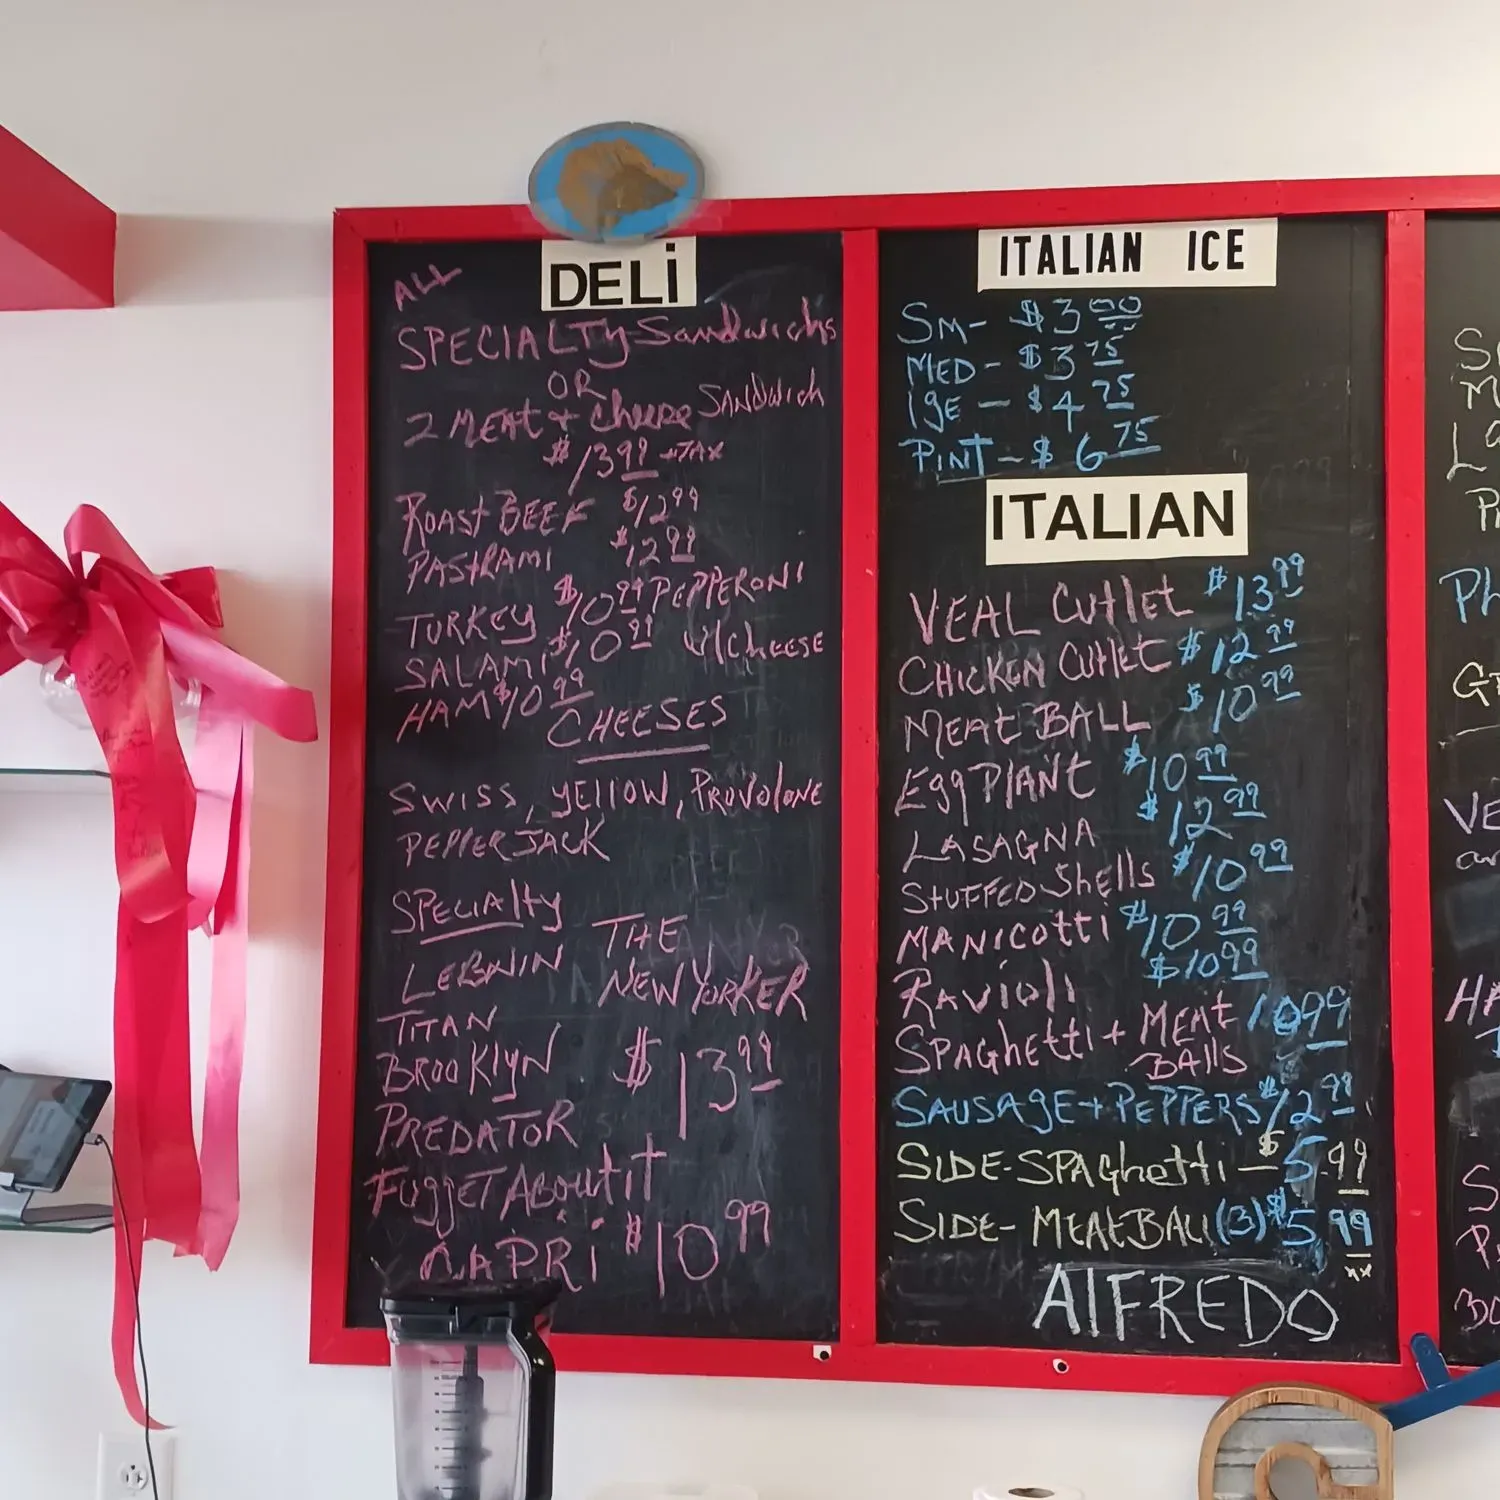 DELi
ALL
SPECIALTY Sandwichs
OR
2 MEAT + Cheese SANDwich
$13.99 +TAX
ROAST BEEF $12.99
PASTRAMI $12.99
TURKEY $10.99 PEPPERONI
SALAMI $10.99 w/Cheese
HAM $10.99
CHEESES
SWISS, YEllOW, PROVOlONE
PEPPER JACK
SPECIAlty
LEBWIN THE
NEW YORKER
TITAN
BROOKlYN $13.99
PREDATOR
FUGGET ABOUT IT
CAPRi $10.99
ITALIAN ICE
SM- $3.00
MED- $3.75
lgE - $4.75
PINT - $6.75
ITALIAN
VEAL CUtlet $13.99
CHICKEN CUtlet $12.99
MEAT BALL $10.99
EggPlANT $10.99
LASAGNA $12.99
STUFFED Shells $10.99
MANICOtti $10.99
RAViOli $10.99
SPAGhetti + MEAT BAlls 10.99
SAUSAgE + PEPPERS $12.99
SIDE-SPAGhetti - $5.99
SIDE- MEATBAll (3) $5.99
AlFREDO